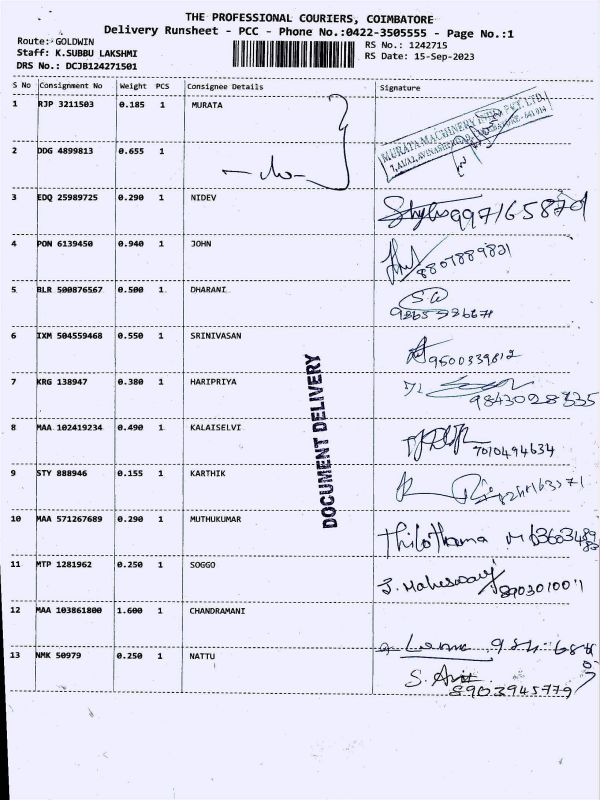 THE PROFESSIONAL COURIERS, COIMBATORE
Delivery Runsheet - PCC - Phone No.:0422-3505555 - Page No.:1
Route: GOLDWIN
RS No.: 1242715
Staff: K.SUBBU LAKSHMI
RS Date: 15-Sep-2023
DRS No.: DCJB124271501
S No Consignment No Weight PCS Consignee Details Signature
1 RJP 3211503 0.185 1 MURATA
MURATA MACHINERY INDIA PVT. LTD.
2 DDG 4899813 0.655 1
3 EDQ 25989725 0.290 1 NIDEV
9971658701
4 PON 6139450 0.940 1 JOHN
8807889821
5 BLR 500876567 0.500 1 DHARANI
6 IXM 504559468 0.550 1 SRINIVASAN
9500339812
7 KRG 138947 0.380 1 HARIPRIYA
9843028335
8 MAA 102419234 0.490 1 KALAISELVI
7010494634
9 STY 888946 0.155 1 KARTHIK
10 MAA 571267689 0.290 1 MUTHUKUMAR
Thilothama
11 MTP 1281962 0.250 1 SOGGO
J. Maheswari
12 MAA 103861800 1.600 1 CHANDRAMANI
13 NMK 50979 0.250 1 NATTU
S.
8903945779
DOCUMENT DELIVERY